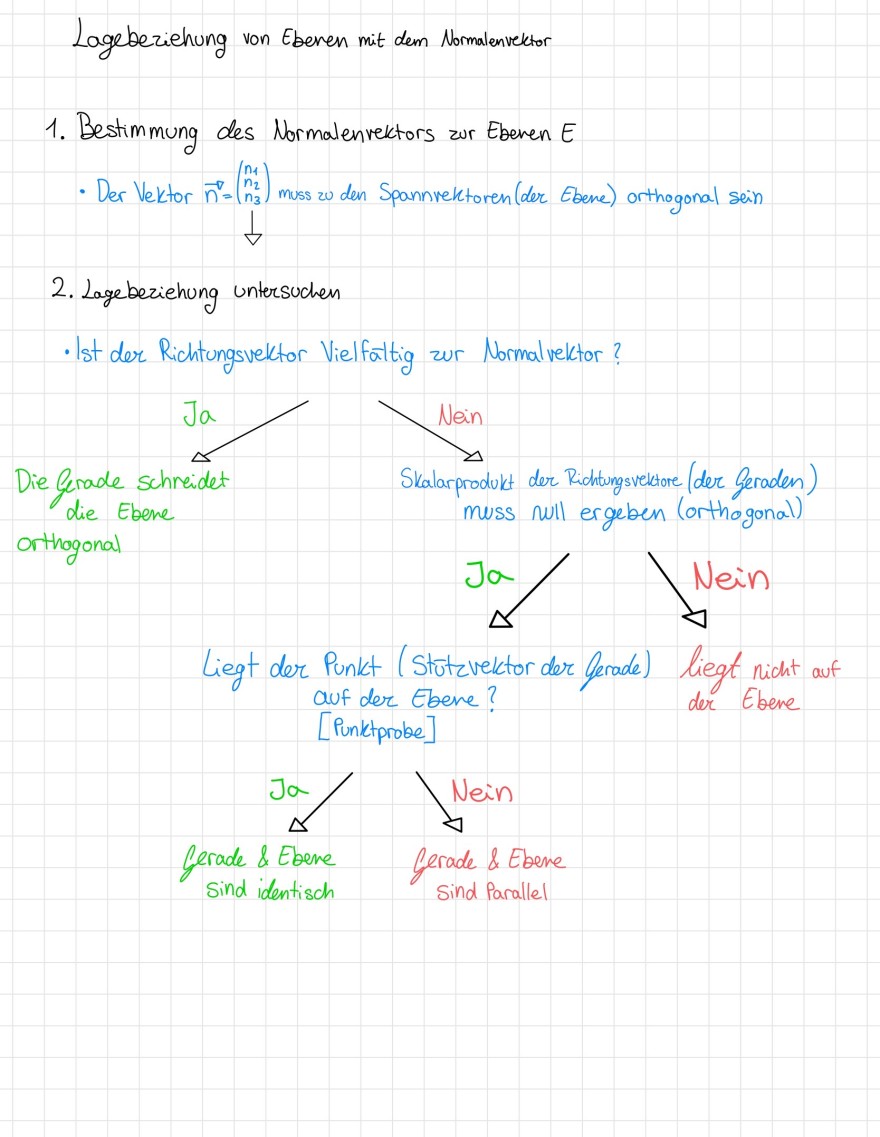 Lagebeziehung von Ebenen mit dem Normalenvektor
1. Bestimmung des Normalenvektors zur Ebenen E
• Der Vektor n⃗ = (n1 n2 n3) muss zu den Spannvektoren (der Ebene) orthogonal sein
2. Lagebeziehung untersuchen
• Ist der Richtungsvektor Vielfältig zur Normalvektor ?
Ja
Nein
Die Gerade schreidet
die Ebene
orthogonal
Skalarprodukt der Richtungsvektore (der Geraden)
muss null ergeben (orthogonal)
Ja
Nein
Liegt der Punkt (Stützvektor der Gerade)
auf der Ebene ?
[Punktprobe]
liegt nicht auf
der Ebene
Ja
Nein
Gerade & Ebene
sind identisch
Gerade & Ebene
sind Parallel